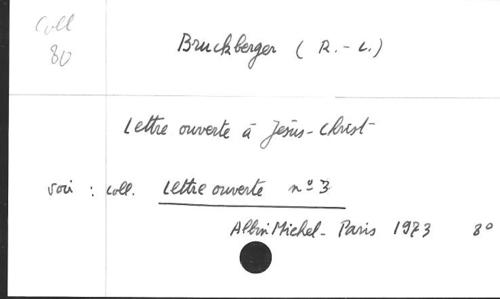 Coll
80
Bruckberger ( R.-L.)
Lettre ouverte à Jésus-Christ
voir : coll. Lettre ouverte n° 3
Albin Michel - Paris 1973 8°